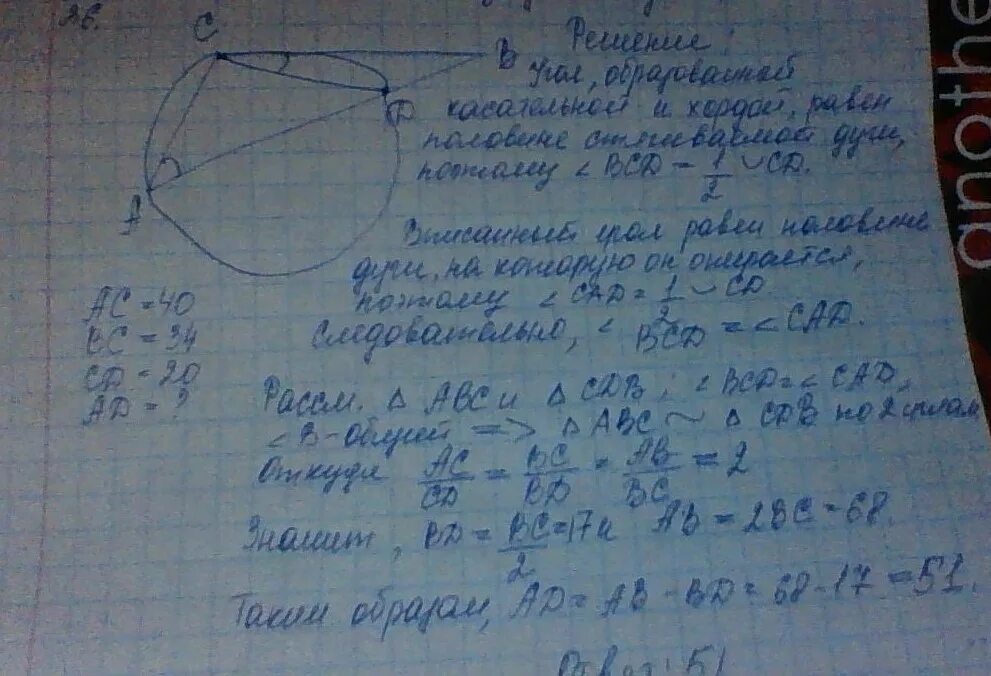 26.
C
B
D
A
Решение:
Угол, образованный
касательной и хордой, равен
половине стягиваемой дуги,
поэтому ∠BCD = 1/2 ◡CD.
Вписанный угол равен половине
дуги, на которую он опирается,
поэтому ∠CAD = 1/2 ◡CD
Следовательно, ∠BCD = ∠CAD.
AC = 40
BC = 34
CD = 20
AD = ?
Рассм. △ ABC и △ CDB; ∠BCD = ∠CAD,
∠B - общий => △ABC ~ △CDB по 2 углам
Откуда AC/CD = BC/BD = AB/BC = 2
Значит, BD = BC/2 = 17 и AB = 2BC = 68.
Таким образом, AD = AB - BD = 68 - 17 = 51.
Ответ: 51
anothe